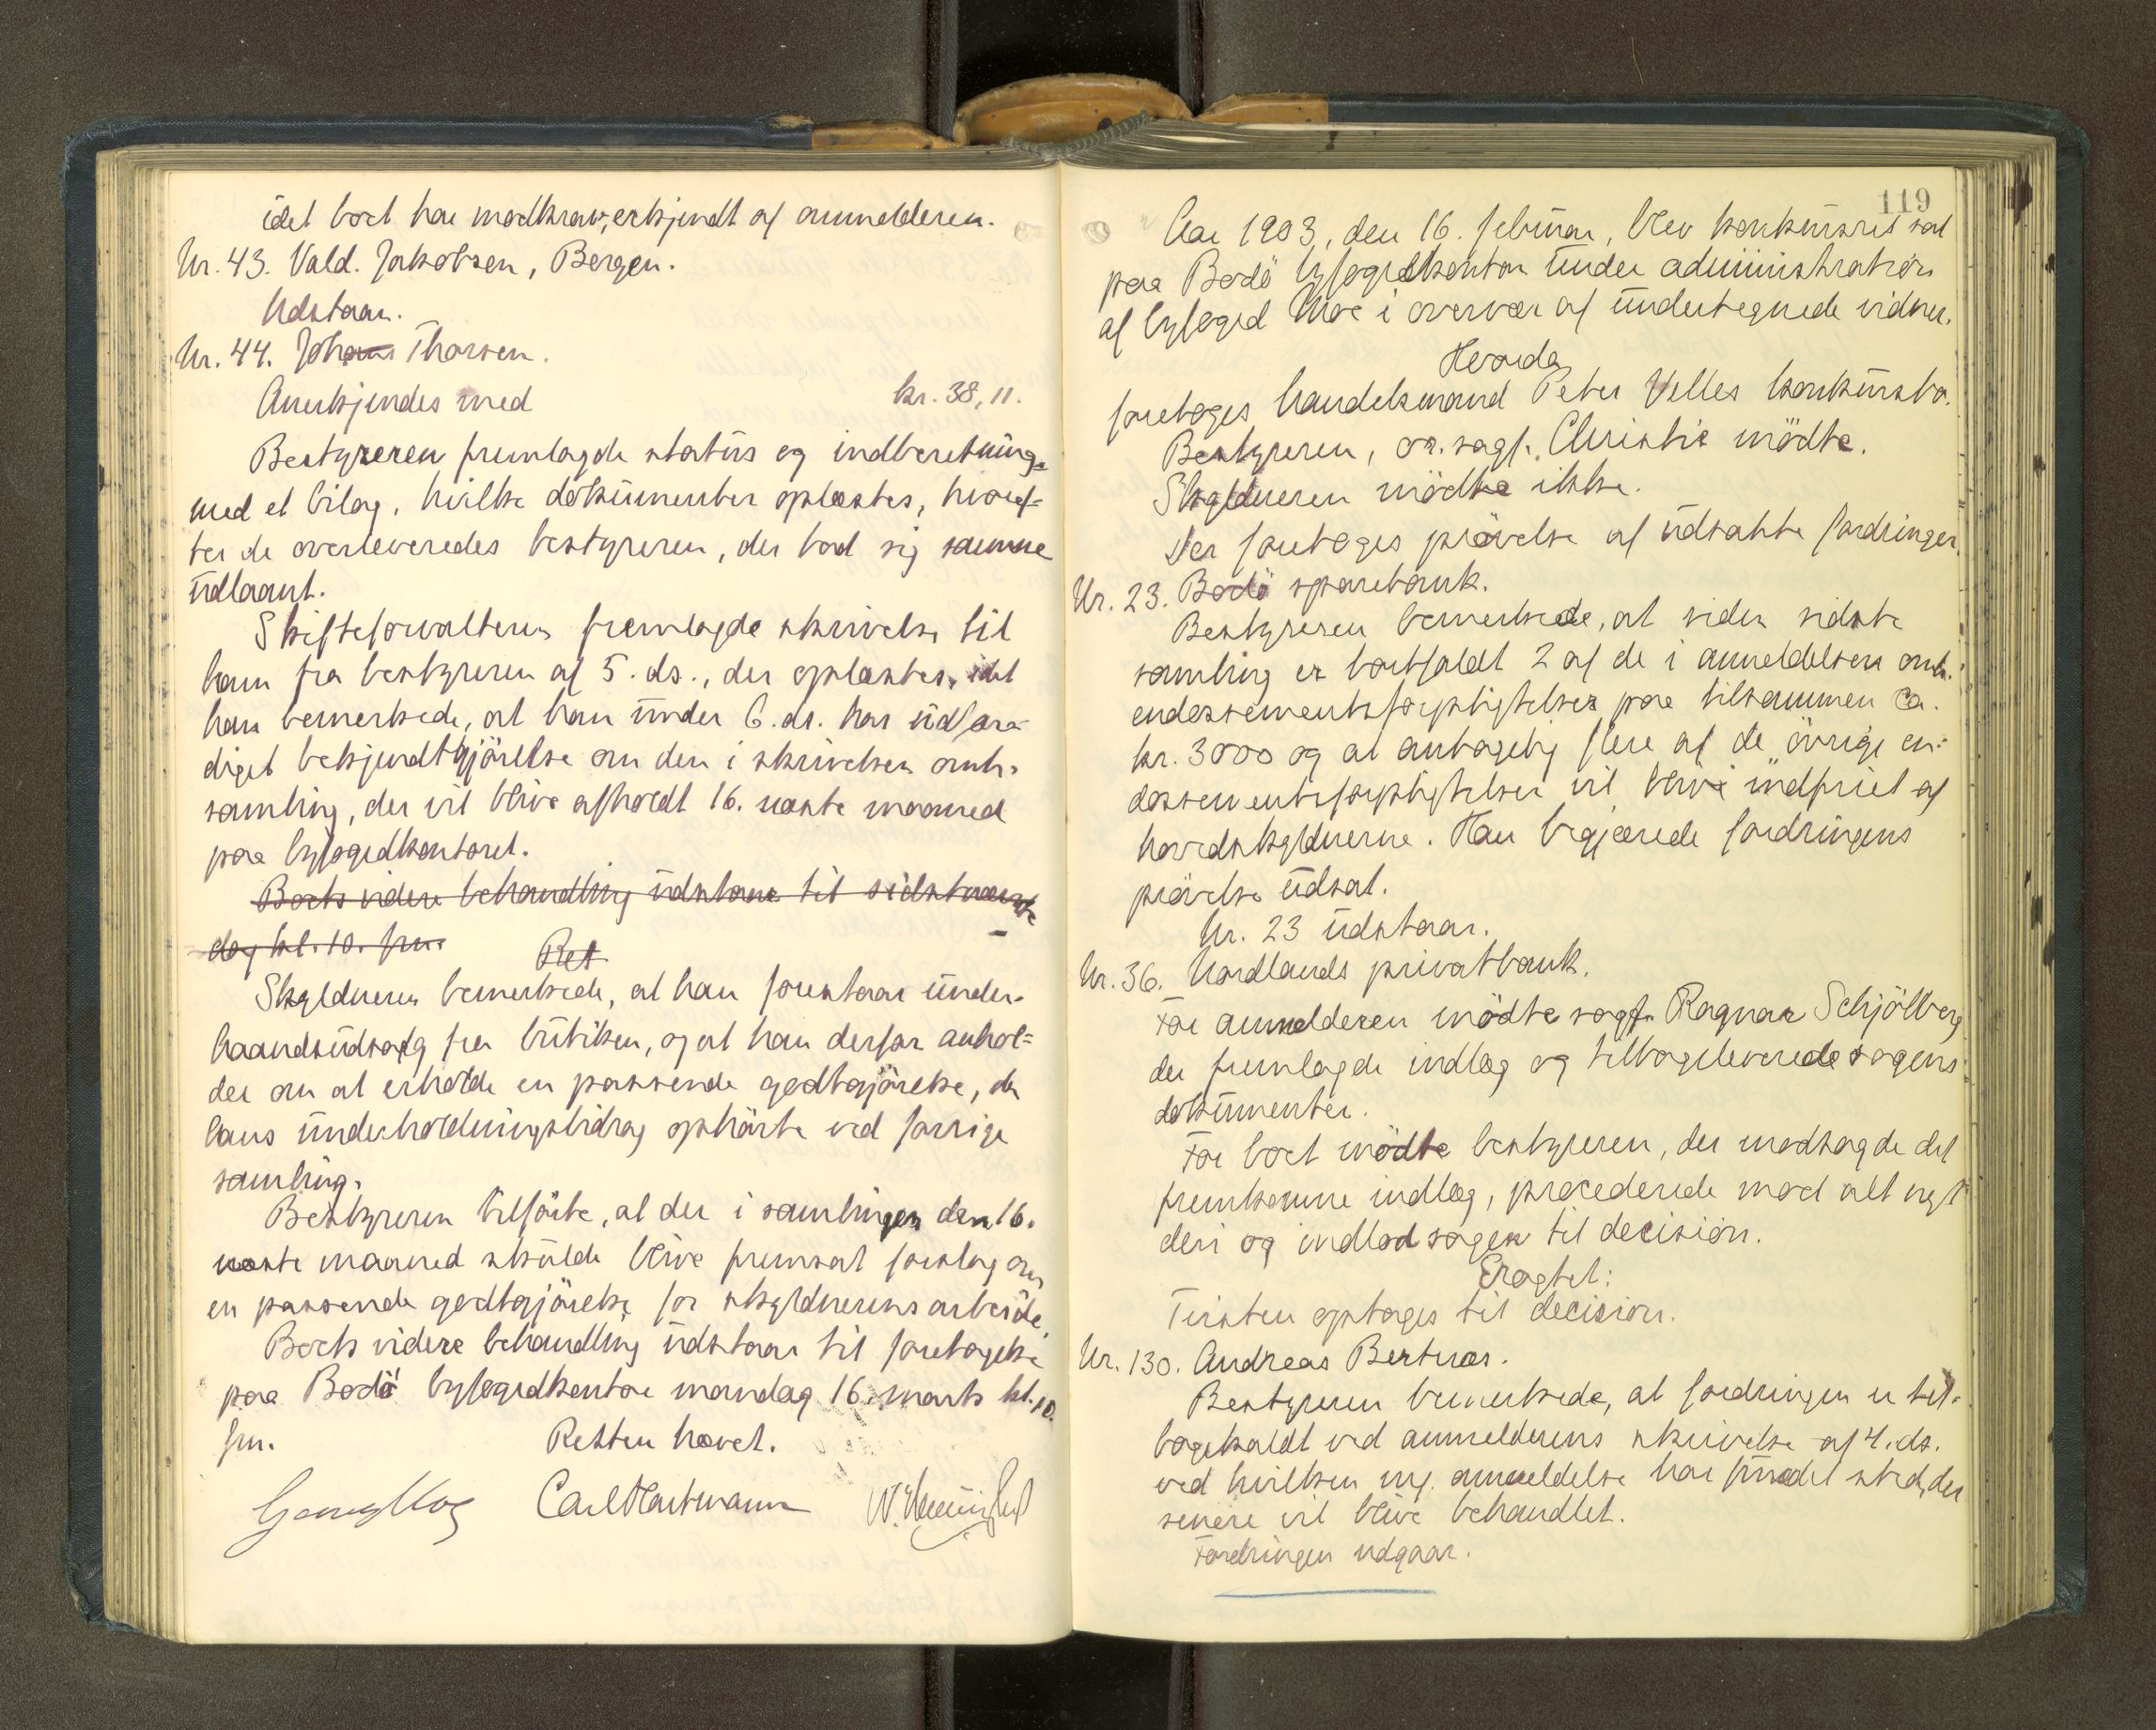 idet boet har modkrav, erkjendt af anmelderen.
Nr. 43. Vald. Jakobsen, Bergen.
Udstaar.
Nr. 44. Johan Thorsen.
Anerkjendes med kr. 38,11.
Bestyreren fremlagde status og indberetning
med et bilag, hvilke dokumenter oplæstes, hvoref-
ter de overleveredes bestyreren, der bad sig samme
udlaant.
Skifteforvalteren fremlagde skrivelse til
ham fra bestyreren af 5. ds., der oplæstes, idet
han bemerkede, at han under 6. ds. har udfær-
diget bekjendtgjörelse om den i skrivelsen omh.
samling, der vil blive afholdt 16. næste maaned
paa byfogedkontoret.
Boets videre behandling udstaar til sidstnævnte
dag kl. 10. fm.
Ret
Skyldneren bemerkede, at han forestaar under-
haandsudsalg fra butiken, og at han derfor anhol-
der om at erholde en passende godtgjörelse, da
hans underholdningsbidrag ophörte ved forrige
samling.
Bestyreren tilförte, at der i samlingen den 16.
næste maaned skulde blive fremsat forslag om
en passende godtgjörelse for skyldnerens arbeide.
Boets videre behandling udstaar til foretagelse
paa Bodö byfogedkontor mandag 16. marts kl. 10.
fm. Retten hævet.
Georg Moe Carl Hartmann
119
Aar 1903, den 16. februar, blev konkursret sat
paa Bodö byfogedkontor under administration
af byfoged Moe i overvær af undertegnede vidner.
Hvorda
foretoges handelsmand Peter Velles konkursbo.
Bestyreren, or. sagf. Christie mödte.
Skyldneren mödte ikke.
Der foretoges prövelse af udsatte fordringer.
Nr. 23. Bodö sparebank.
Bestyreren bemerkede, at siden sidste
samling er bortfaldt 2 af de i anmeldelsen omh.
endossementsforpligtelser paa tilsammen ca.
kr. 3000 og at antagelig flere af de övrige en-
dossementsforpligtelser vil blive indfriet af
hovedskyldnerne. Han begjærede fordringens
prövelse udsat.
Nr. 23 udstaar.
Nr. 36. Nordlands privatbank.
For anmelderen mödte sagf. Ragnar Schjölberg
der fremlagde indlæg og tilbageleverede sagens
dokumenter.
For boet mödte bestyreren, der modsagde det
fremkomne indlæg, procederede mod alt nyt
deri og indlod sagen til decision.
Eragtet:
Tvisten optages til decision.
Nr. 130. Andreas Bertnæs.
Bestyreren bemerkede, at fordringen er til-
bagekaldt ved anmelderens skrivelse af 4. ds.
ved hvilken ny anmeldelse har fundet sted, der
senere vil blive behandlet.
Fordringen udgaar.